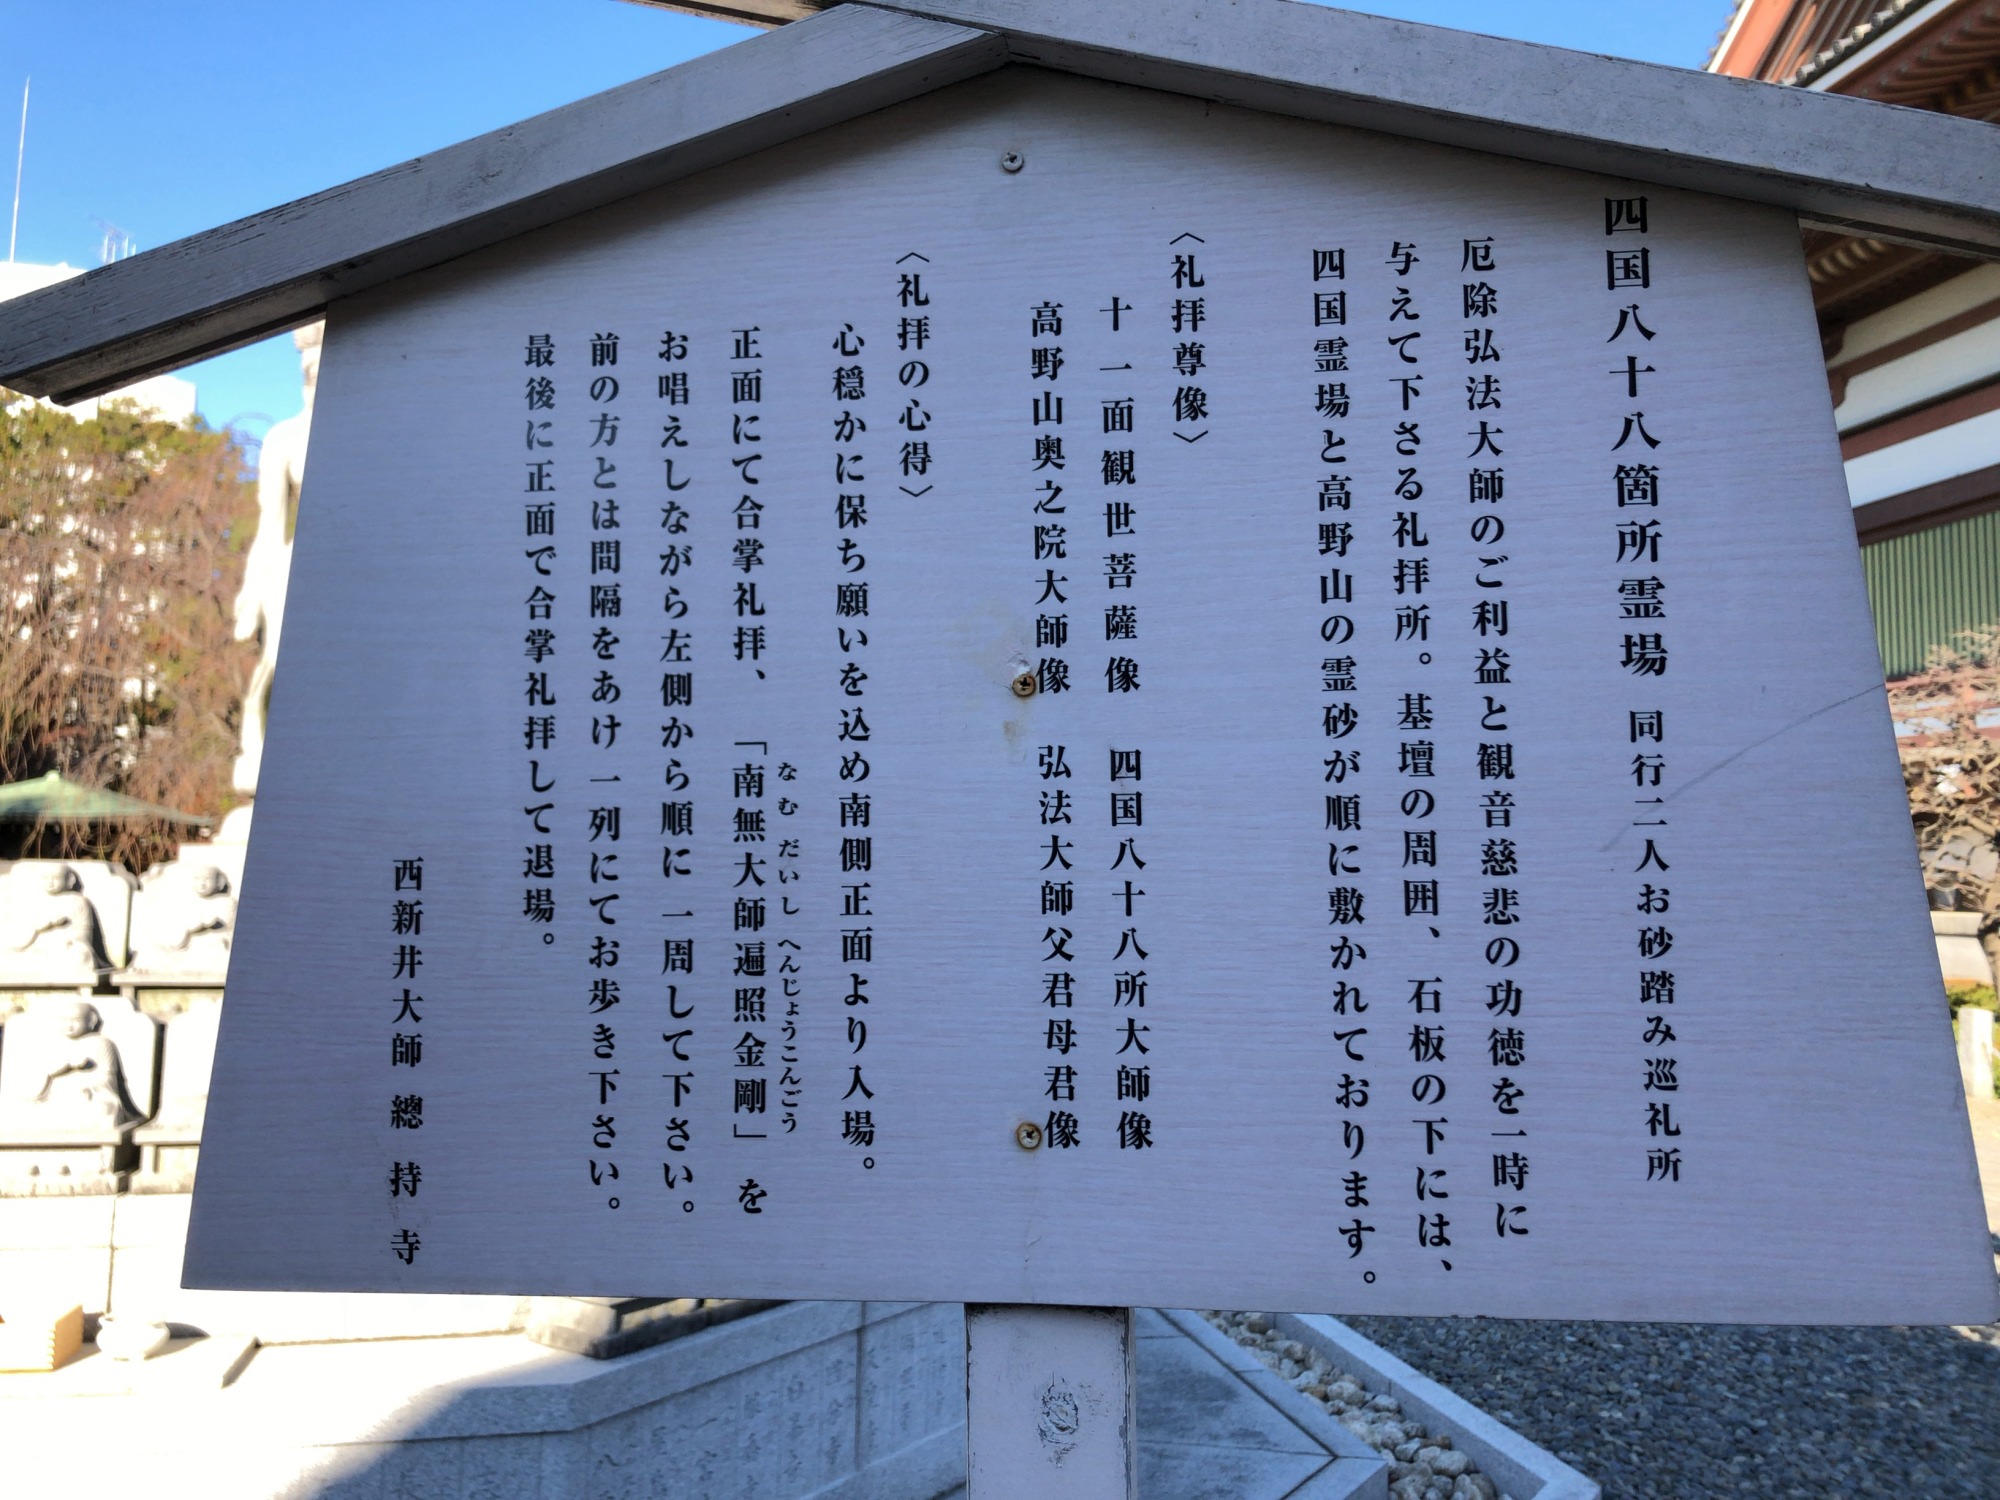 四国八十八箇所霊場 同行二人お砂踏み巡礼所
厄除弘法大師のご利益と観音慈悲の功徳を一時に
与えて下さる礼拝所。基壇の周囲、石板の下には、
四国霊場と高野山の霊砂が順に敷かれております。
〈礼拝尊像〉
十一面観世菩薩像 四国八十八所大師像
高野山奥之院大師像 弘法大師父君母君像
〈礼拝の心得〉
心穏かに保ち願いを込め南側正面より入場。
なむ だいし へんじょうこんごう
正面にて合掌礼拝、「南無大師遍照金剛」を
お唱えしながら左側から順に一周して下さい。
前の方とは間隔をあけ一列にてお歩き下さい。
最後に正面で合掌礼拝して退場。
西新井大師 總持寺